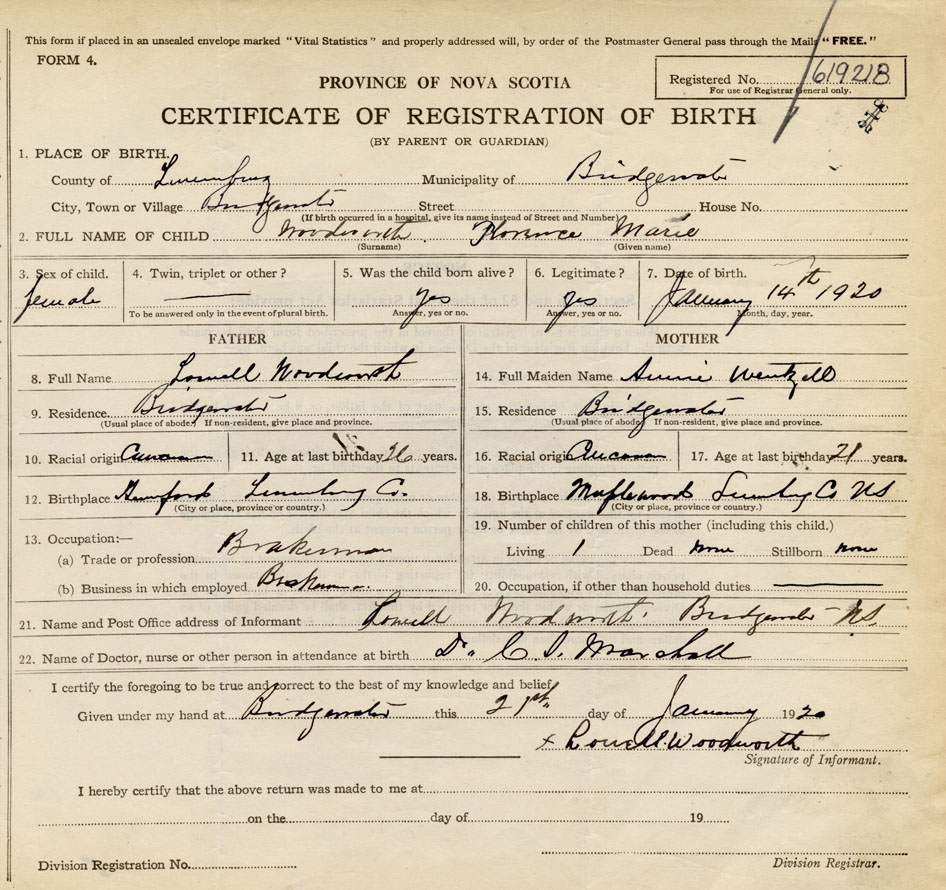 This form if placed in an unsealed envelope marked "Vital Statistics" and properly addressed will, by order of the Postmaster General pass through the Mails "FREE."
FORM 4.
PROVINCE OF NOVA SCOTIA
Registered No. 619218
For use of Registrar General only.
CERTIFICATE OF REGISTRATION OF BIRTH
(BY PARENT OR GUARDIAN)
1. PLACE OF BIRTH.
County of Lunenburg Municipality of Bridgewater
City, Town or Village Bridgewater Street House No.
(If birth occurred in a hospital, give its name instead of Street and Number)
2. FULL NAME OF CHILD Woodworth Florence Marie
(Surname) (Given name)
3. Sex of child. 4. Twin, triplet or other? 5. Was the child born alive? 6. Legitimate? 7. Date of birth.
female yes yes January 14th 1920
To be answered only in the event of plural birth. Answer, yes or no. Answer, yes or no. Month, day, year.
FATHER MOTHER
8. Full Name Lowell Woodworth 14. Full Maiden Name Annie Wentzell
9. Residence. Bridgewater 15. Residence Bridgewater
(Usual place of abode) If non-resident, give place and province. (Usual place of abode) If non-resident, give place and province.
10. Racial origin 11. Age at last birthday 26 years. 16. Racial origin 17. Age at last birthday 21 years.
12. Birthplace Lunenburg Co. 18. Birthplace Maplewood Lunenburg Co NS
(City or place, province or country.) (City or place, province or country.)
19. Number of children of this mother (including this child.)
13. Occupation:—
(a) Trade or profession Brakeman Living 1 Dead none Stillborn none
(b) Business in which employed 20. Occupation, if other than household duties
21. Name and Post Office address of Informant Lowell Woodworth. Bridgewater NS.
22. Name of Doctor, nurse or other person in attendance at birth Dr. C. S. Marshall
I certify the foregoing to be true and correct to the best of my knowledge and belief
Given under my hand at Bridgewater this 21st day of January 1920
x Lowell Woodworth
Signature of Informant.
I hereby certify that the above return was made to me at
on the day of 19
Division Registration No. Division Registrar.